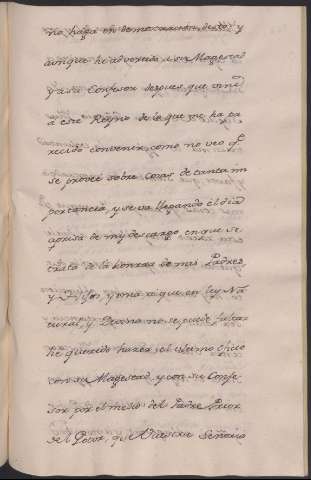 no haga en demostracion desto y
aunque he advertido a su Magestad
y a su Confesor despues que vine
a este Reyno de lo que me ha pa
recido convenir, como no veo q.e
se provee sobre cosas de tanta im
portancia, y se va llegando el dia
de my descargo en que se
trata de la honra de mas Padres
y Hijos, y roma a que en ley Na
tural, y Divina no se puede faltar
he querido hazer el ultimo oficio
con su Magestad, y con su Confe
sor por el medio del Padre Prior
del